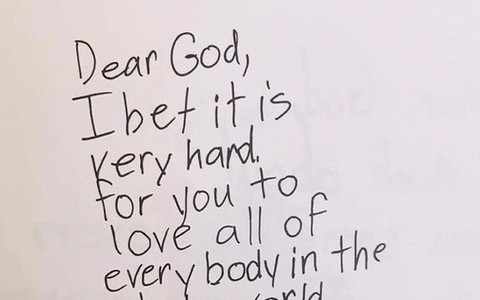 Dear God,
I bet it is
very hard.
for you to
love all of
every body in the